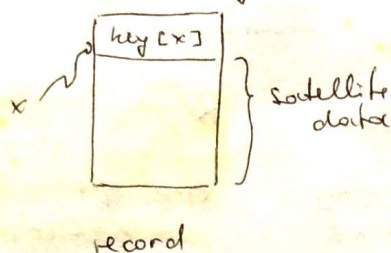 key [x]
x
satellite
data
record